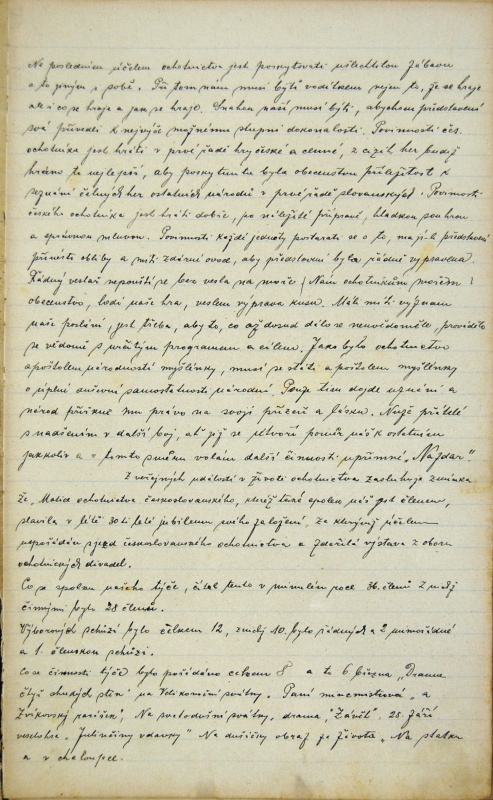 Ne posledním účelem ochotnictva jest poskytovati ušlechtilou zábavu
a to jiným i sobě. Při tom nám musí býti vodítkem nejen to, že se hraje
ale i co se hraje a jak se hraje. Snahou naší musí býti, abychom představení
svá přivedli k nejvýše možnému stupni dokonalosti. Povinností čes.
ochotníka jest hráti v první řadě hry české a cenné, z cizích her budiž
hráno to nejlepší, aby poskytnuta byla obecenstvu příležitost k
seznání četných her ostatních národů v první řadě slovanských. Povinností
českého ochotníka jest hráti dobře, po náležité přípravě, hladkou souhrou
a správnou mluvou. Povinností každé jednoty postarati se o to, má-li představení
přinésti obliby a míti zdárný ovoce, aby představení byla řádně vypravena.
Řádný veslař nepouští se bez vesla na moře (Nám ochotníkům mořem
obecenstvo, lodí naše hra, veslem výprava kusu. Má-li míti význam
naše poslání, jest třeba, aby to, co až dosud dálo se neuvědoměle, provádělo
se vědomě s určitým programem a cílem. Jako bylo ochotnictvo
apoštolem národností myšlénky, musí se státi apoštolem myšlénky
o úplné duševní samostatnosti národní. Pouze tím dojde uznání a
národ přiřkne mu právo na svoji přízeň a lásku. Nuže přátelé
s nadšením v další boj, ať již se utvoří poměr náš k ostatním
jakkoliv a v tomto směru volám další činnosti upřímné „Nazdar".
Z veřejných událostí v životě ochotnictva zasluhuje zmínka
že „Matice ochotnictva československého, kteréž také spolek náš jest členem,
slavila v létě 30ti leté jubileum svého založení, za kterýmž účelem
uspořádán sjezd československého ochotnictva a zdařilá výstava z oboru
ochotnických divadel.
Co se spolku našeho týče, čítal tento v minulém roce 36 členů z nichž
činnými bylo 28 členů.
Výborových schůzí bylo celkem 12, z nichž 10 bylo řádných a 2 mimořádné
a 1. členskou schůzi.
Co se činnosti týče bylo pořádáno celkem 8 a to 6 března „Drama
čtyř chudých stěn" na Velikonoční svátky. „Paní mincmistrová" a
Zvíkovský rarášek", Na svatodušní svátky, drama "Závěť", 28. září
veselohra „Julinčiny vdavky" Na dušičky obraz ze života „Na statku
a v chaloupce.